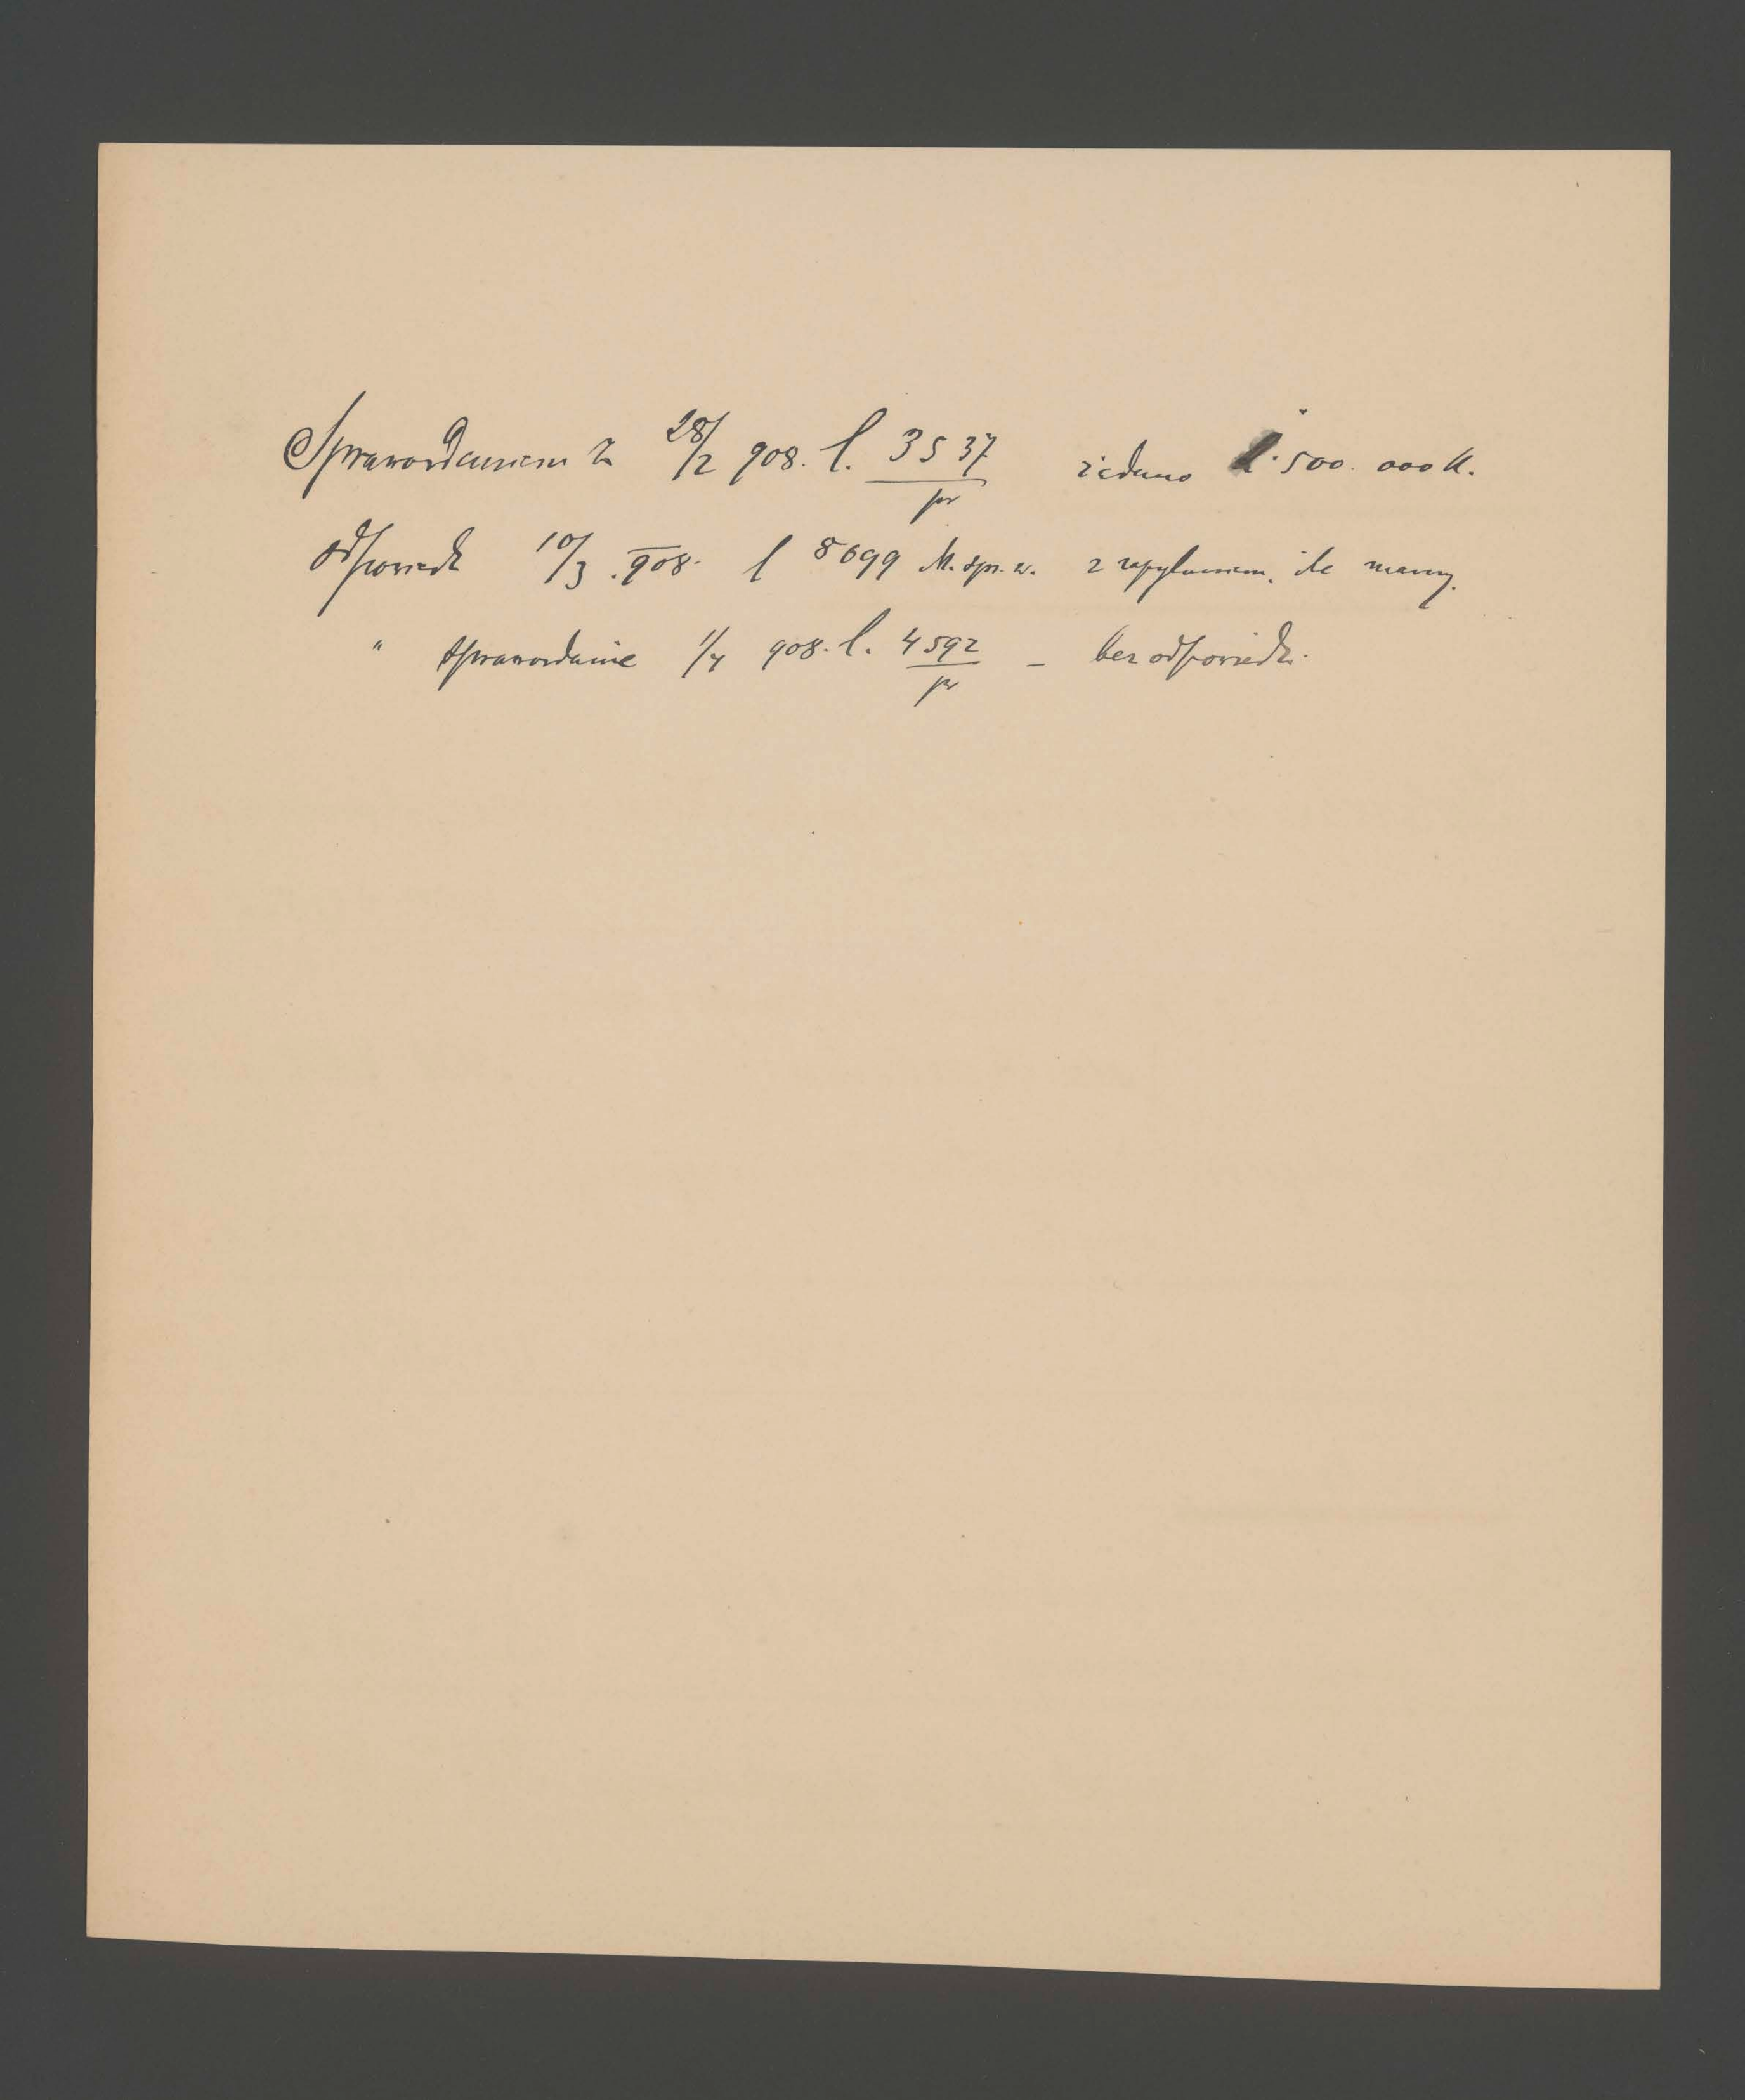 Sprawozdaniem z 28/2 908. l. 3537/pr żądano 500.000 K.
odpowiedź 10/3 908. l 8699 M. spr. w. z zapytaniem, ile mamy.
" sprawozdanie 1/4 908. l. 4592/pr – bez odpowiedzi.